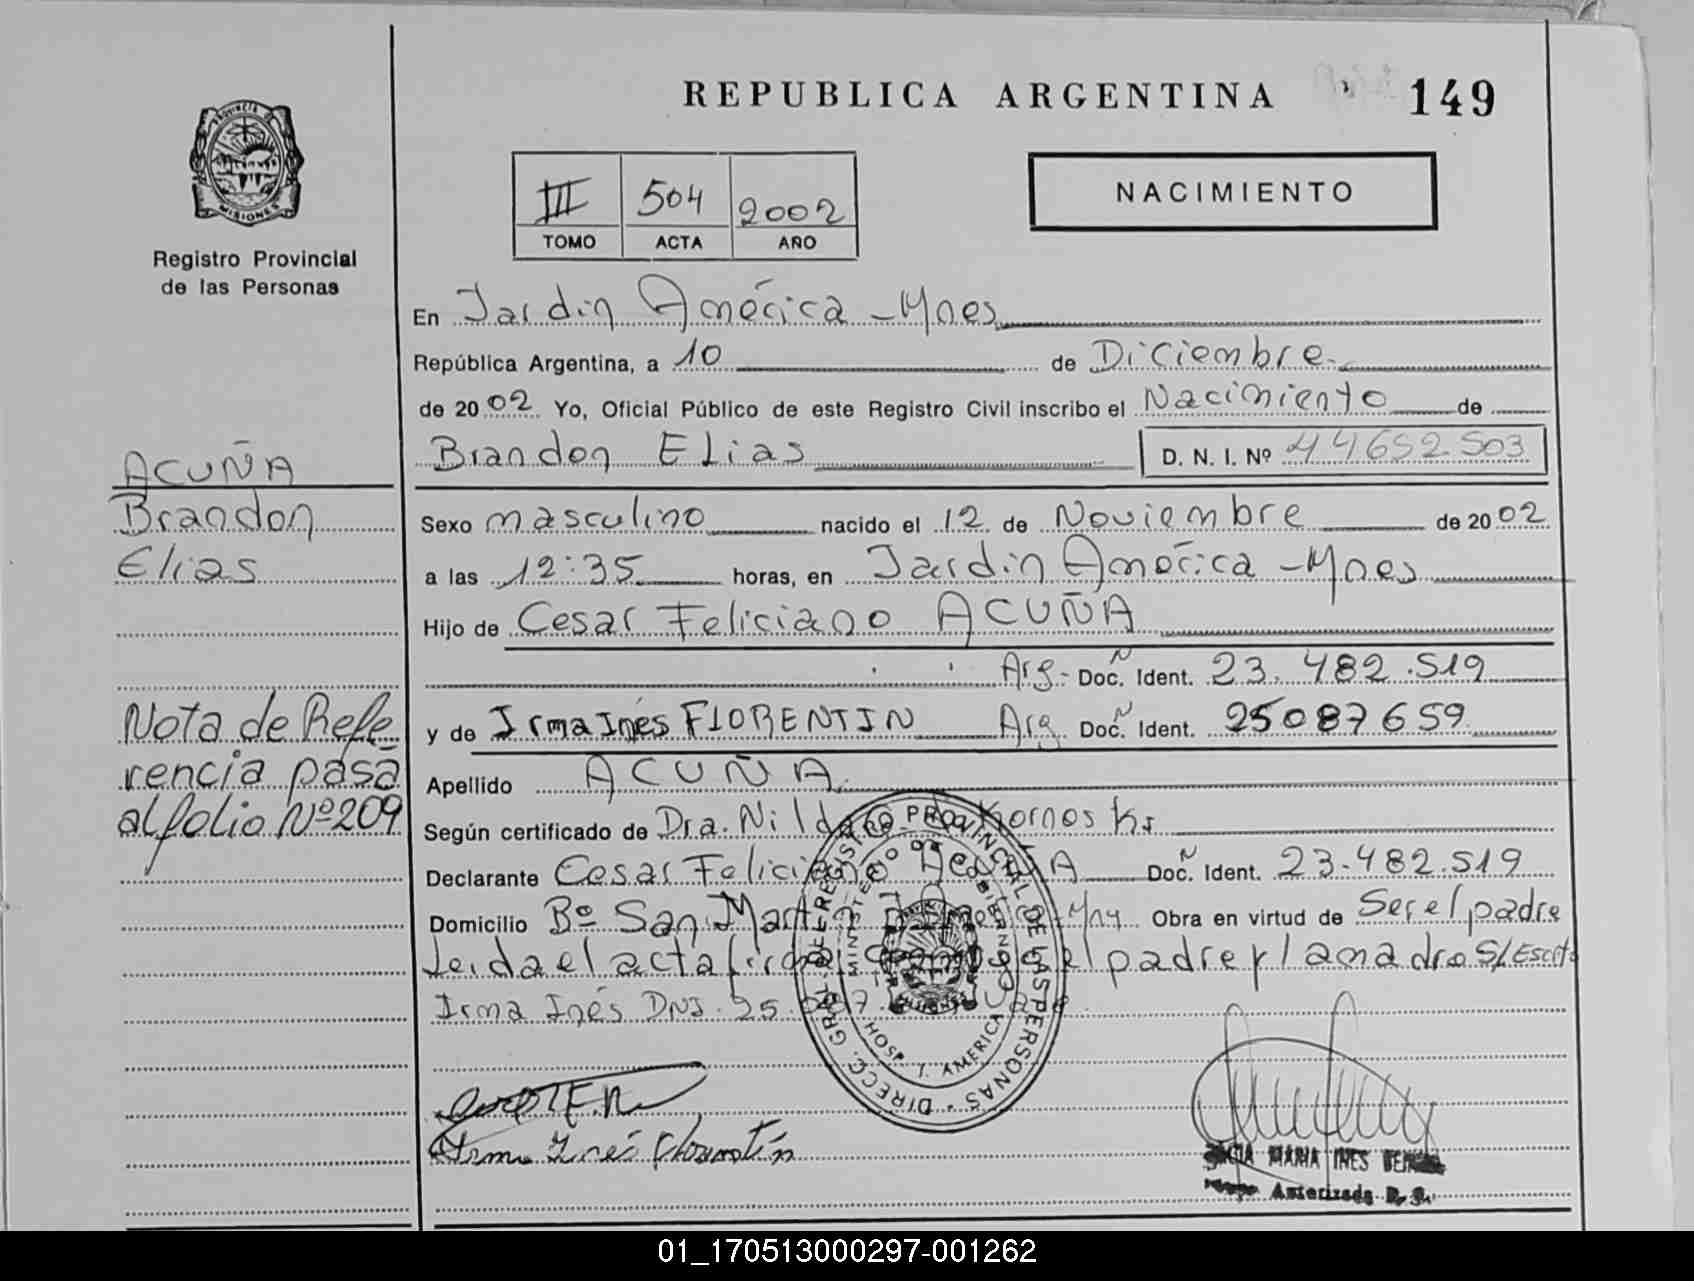 REPUBLICA ARGENTINA 149
PROVINCIA DE MISIONES
Registro Provincial
de las Personas
III 504 2002
TOMO ACTA AÑO
NACIMIENTO
En Jardin América - Mnes
República Argentina, a 10 de Diciembre
de 2002 Yo, Oficial Público de este Registro Civil inscribo el Nacimiento de
Brandon Elias D. N. I. Nº 44652503
ACUÑA
Brandon
Elias
Sexo masculino nacido el 12 de Noviembre de 2002
a las 12:35 horas, en Jardin América - Mnes
Hijo de Cesar Feliciano ACUÑA
Arg- Doc. Ident. 23.482.519
y de Irma Inés FLORENTIN Arg Doc. Ident. 25087659
Nota de Refe
rencia pasa
al folio Nº 209
Apellido ACUÑA
Según certificado de Dra. Nilda Kornoski
Declarante Cesar Feliciano ACUÑA Doc. Ident. 23.482.519
Domicilio Bº San Martin Obra en virtud de Ser el padre
Leida el acta el padre y la madre S/Escrito
Irma Inés DNI. 25.087
DIRECC. GRAL. DE REGISTRO PROVINCIAL DE LAS PERSONAS
MINISTERIO DE GOBIERNO
HOSP. J. AMERICA
Irma Inés Florentín
MARIA INES
Autorizada
01_170513000297-001262